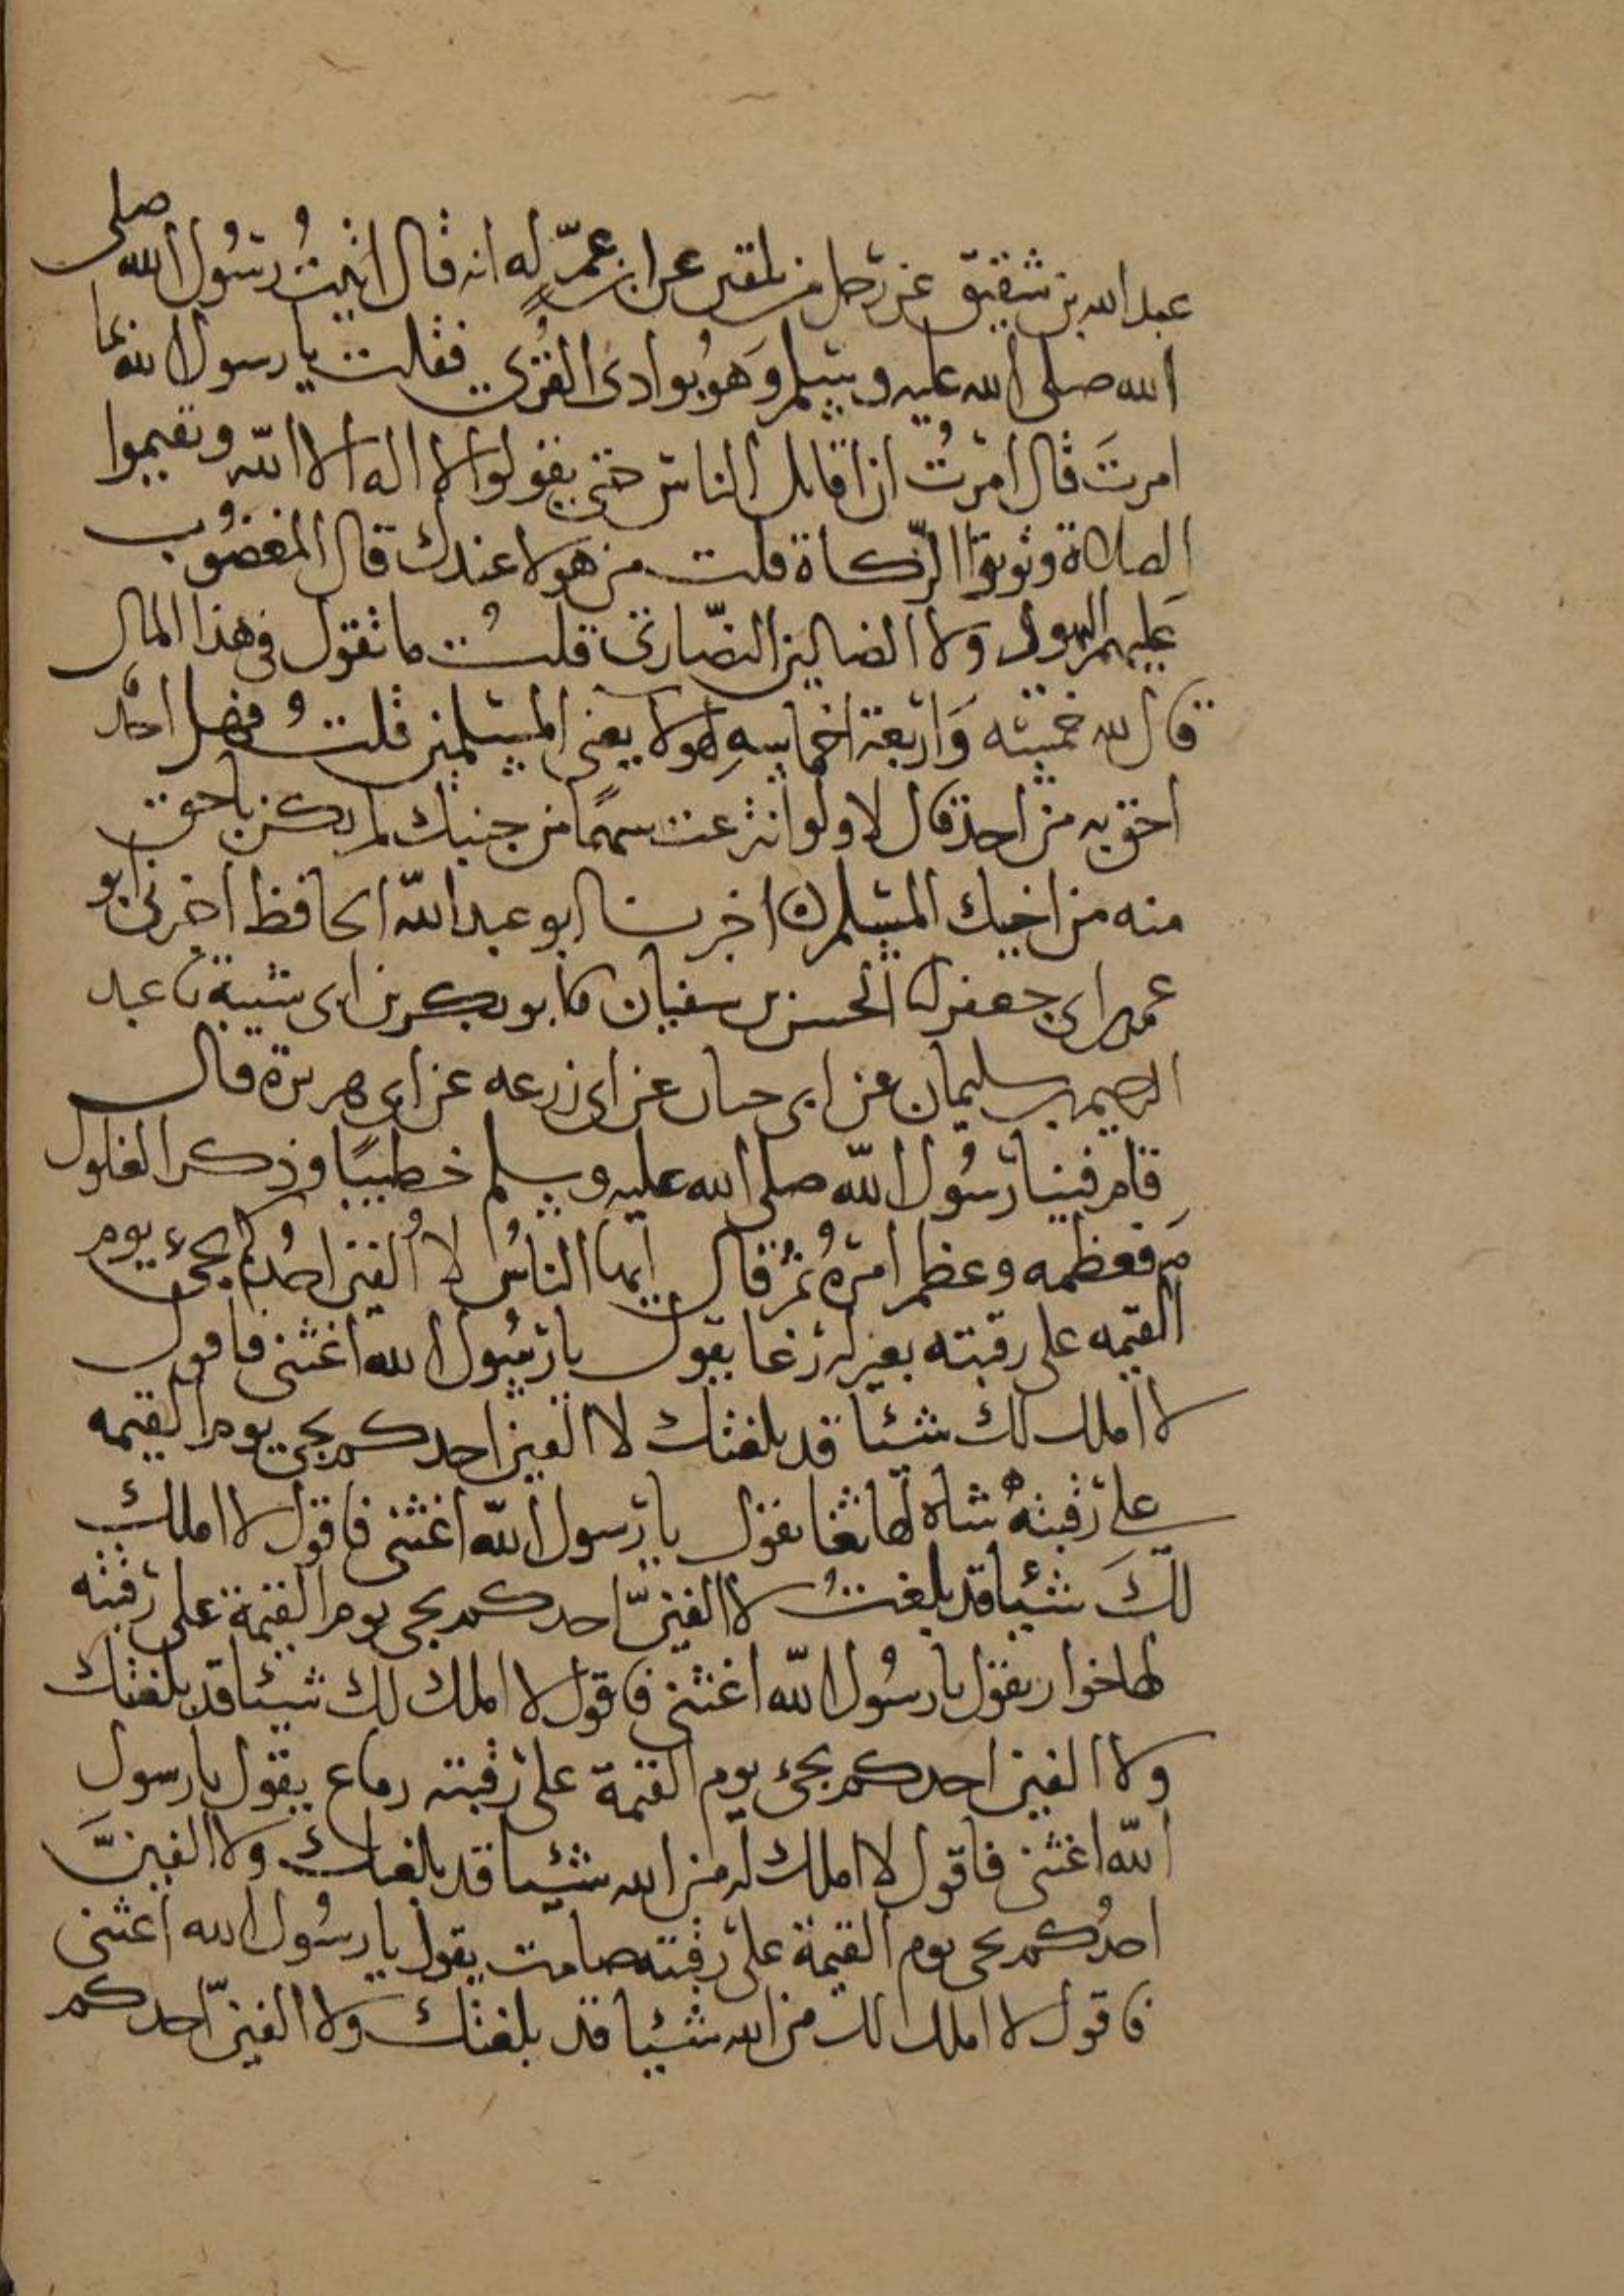 عبد الله بن شقيق عن رجل من بلقين عن ابن عمٍّ له انه قال اتيتُ رسُول الله صلى
الله صلى الله عليه وسلم وَهوُ بوادى القرى فقلت يا رسول الله بما
امرتَ قال امرتُ ان اقاتل الناس حتى يقولوا لا اله الا الله وتقيموا
الصلاة وتوتوا الزكاة قلت من هولا عندك قال المغضُوب
عليهم اليهود وَلا الضالين النصّارى قلتُ ما تقول فى هذا المال
قال لله خمسه وَاربعة اخماسهِ لهولا يعنى المسلمين قلتُ فهل احدٌ
احق به من احد قال لا ولو انتزعت سهمًا من جنبك لم يكن باحق
منه من اخيك المسلم اخبرنا ابو عبد الله الحافظ اخبرنى ابو
عمرو بن ابى جعفر نا الحسن بن سفيان نا ابو بكر بن ابى شيبة نا عبد
الرحيم بن سليمان عن ابى حيان عن ابى زرعه عن ابى هريرة قال
قام فينا رسُول الله صلى الله عليه وسلم خطيبًا وذكر الغلول
فعظمه وعظم امرهُ ثمُ قال ايها الناسُ لا اُلفين احدُكم يجىء يوم
القيمه على رقبته بعير له رغا يقول يا رسُول الله اغثنى فاقول
لا املك لك شيئا قد بلغتك لا الفين احدكم يجى يوم القيمه
على رقبته شاة لها ثغا يقول يا رسول الله اغثنى فاقول لا املك
لكَ شيئا قد بلغتُ لا الفينّ احدكم يجى يوم القيمة على رقبته
لها خوار يقول يا رسُول الله اغثنى فاقول لا املك لك شيئا قد بلغتك
ولا الفين احدكم يجىء يوم القيمة على رقبته رقاع يقول يا رسول
الله اغثنى فاقول لا املك له من الله شيئا قد بلغتك ولا الفينَّ
احدُكم يجى يوم القيمة على رقبته صامت يقول يا رسُول الله اغثنى
فاقول لا املك لك من الله شيئا قد بلغتك ولا الفينّ احدكم